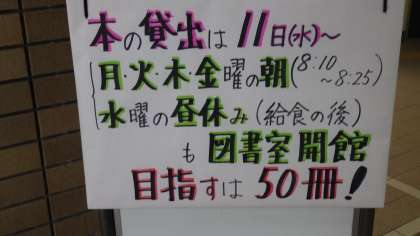 本の貸出は 11日(水)～
月・火・木・金曜の朝(8:10～8:25)
水曜の昼休み(給食の後)
も 図書室開館
目指すは 50冊!